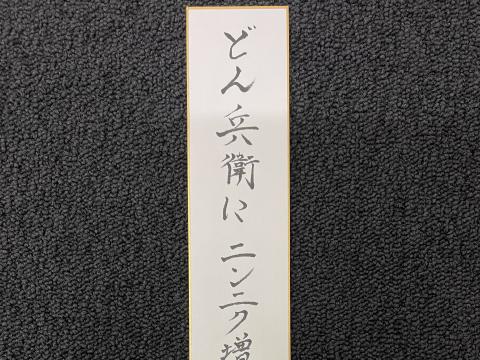 どん兵衛にニンニク増